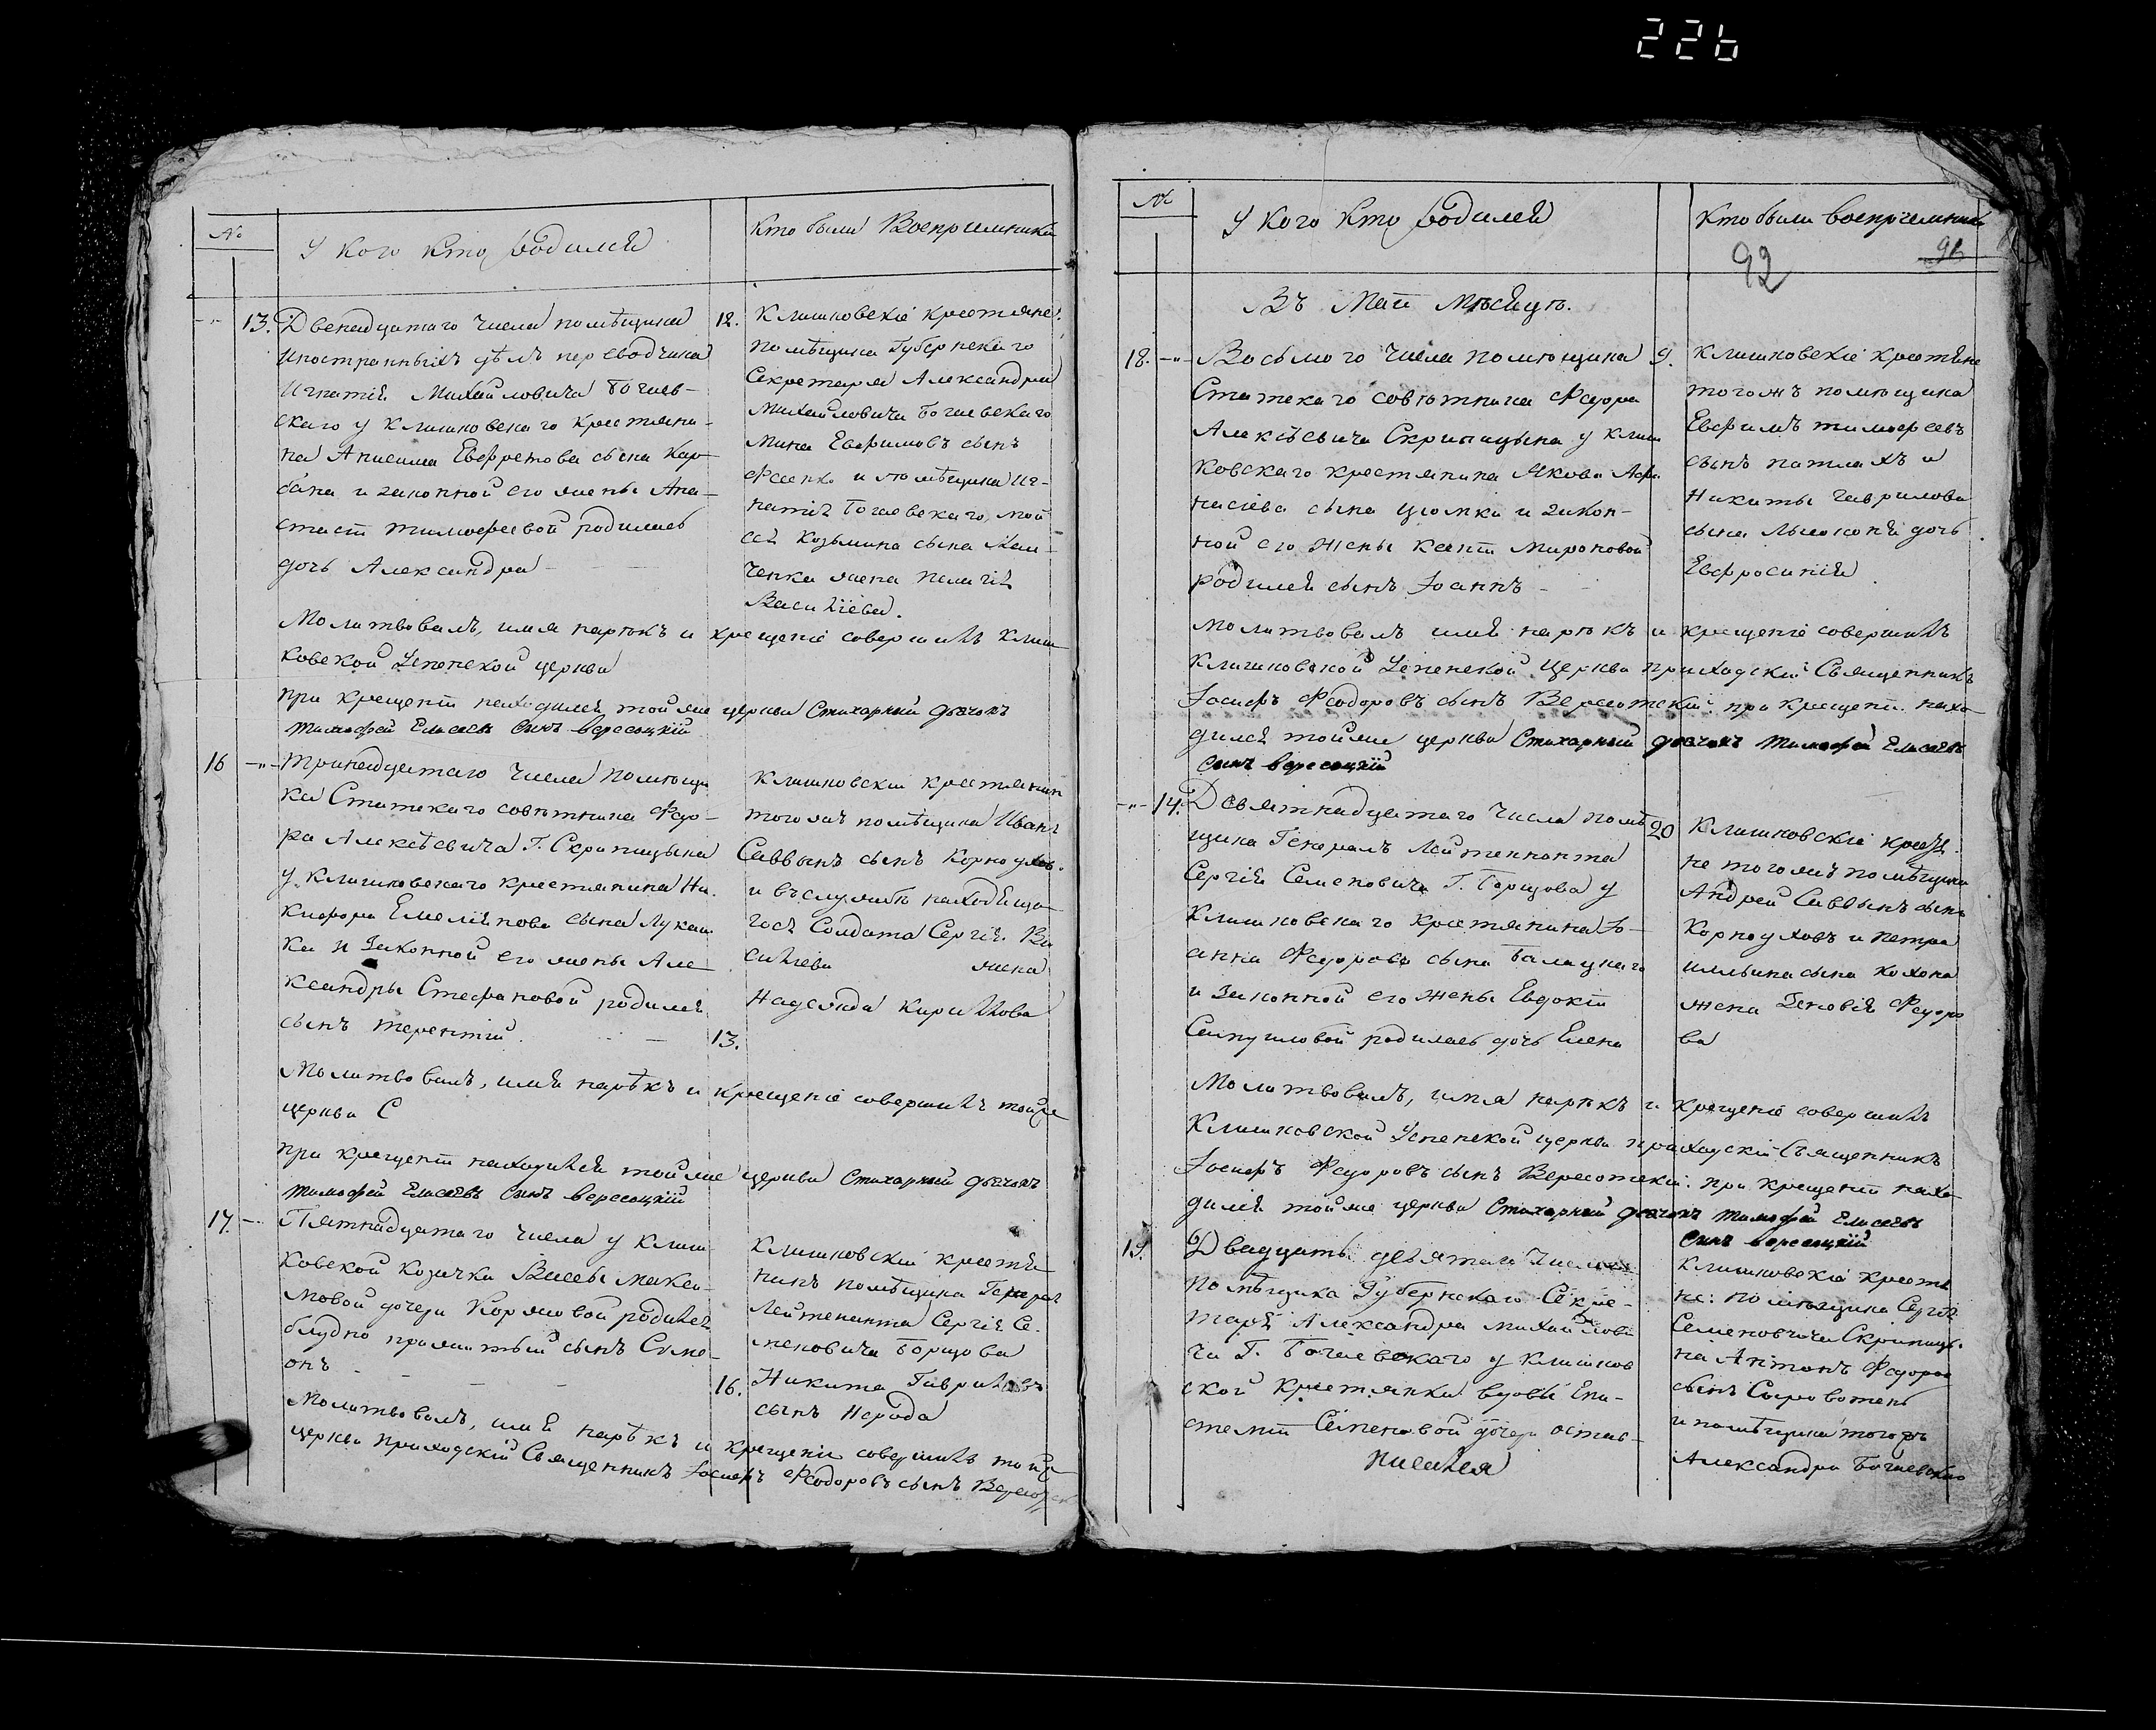 226
№
У кого кто родился
Кто были Восприемники
13.
Двенадцатаго числа помѣщика
Иностранныхъ дѣлъ переводчика
Игнатія Михайловича Богаев-
скаго у Клишковскаго крестяни-
на Анисима Евфремова сына
и законной его жены Ана-
стасіи Тимофеевой родилась
дочь Александра
12.
Клишковскіе крестяне:
помѣщика Губернскаго
Секретаря Александра
Михайловича Богаевскаго
Мина Евфимовъ сынъ
и помѣщика Иг-
натія Богаевскаго Мой
сея Козьмина сына
ченка жена Пелагія
Василіева.
Молитвовалъ, имя нарѣкъ и крещеніе совершилъ Клиш
ковской Успенской церкви
при крещеніи находился тойже церкви Стихарный дьячокъ
Тимофей Елисеевъ Сынъ Вересоцкій
16
Тринадцатаго числа помѣщи
ка Статскаго совѣтника Федо-
ра Алексѣевича Г. Скрипицына
у Клишковскаго крестянина Ни-
кифора Емеліянова сына Лукаш
ки и Законной его жены Але
ксандры Стефановой родился
сынъ Терентій.
13.
Клишковскій крестянин
тогожъ помѣщика Иванъ
Саввинъ сынъ Корноуховъ.
и въ службѣ находяща
гося Солдата Сергія Ва
силіева жена
Надежда Кирилова
Молитвовалъ, имя нарѣкъ и крещеніе совершилъ тойже
церкви С
при крещеніи находился тойже церкви Стихарный дьячокъ
Тимофей Елисеевъ Сынъ Вересоцкій
17.
Пятнадцатаго числа у Клиш-
ковской козачки Вассы Макси-
мовой дочери Коржовой родился
блудно прижитый сынъ Симе-
онъ
16.
Клишковскій крестя
нинъ помѣщика Генерал
Лейтенанта Сергія Се-
меновича Борщова
Никита Гавриловъ
сынъ Нерода
Молитвовалъ, имя нарѣкъ и крещеніе совершилъ тойже
церкви приходскій Священникъ Іосифъ Феодоровъ сынъ Вересотск
№
У кого кто родился
Кто были восприемники
92
91
Въ Маіи Мѣсяцѣ.
18.
Восьмого числа помѣщика
Статскаго совѣтника Федора
Алексѣевича Скрипицына у Клиш
ковскаго крестянина Якова Афа
насіева сына Цюпки и закон-
ной его жены Ксеніи Мироновой
родился сынъ Іоаннъ
9.
Клишковскіе крестяне
тогожъ помѣщика
Евфимъ Тимофеевъ
сынъ и
Никиты Гаврилова
сына дочь
Евфросинія
молитвовалъ имя нарѣкъ и крещеніе совершилъ
Клишковской Успенской Церкви приходскій Священникъ
Іосифъ Феодоровъ сынъ Вересотскій: при крещеніи нахо
дился тойже церкви Стихарный дьячокъ Тимофей Елисеевъ
Сынъ Вересоцкій
14.
Девятнадцатаго числа помѣ
щика Генералъ Лейтенанта
Сергія Семеновича Г. Борщова у
Клишковскаго крестянина Іо-
анна Федорова сына Балацкаго
и Законной его жены Евдокіи
Самуиловой родилась дочь Елена
20
Клишковскіе крестя
не тогожъ помѣщика
Андрей Саввинъ сынъ
Корноуховъ и Петра
Ильина сына Кохона
жена Зеновія Федоро
ва
Молитвовалъ, имя нарѣкъ и крещеніе совершилъ
Клишковской Успенской церкви приходскій Священникъ
Іосифъ Федоровъ сынъ Вересотскій: при крещеніи нахо
дился тойже церкви Стихарный дьячокъ Тимофей Елисеевъ
Сынъ Вересоцкій
19.
Двадцать девятаго числа
помѣщика Губернскаго Секре-
таря Александра Михайлови
ча Г. Богаевскаго у Клишков
ской крестянки вдовы Епи-
стеміи Семеновой дочери остав-
Клишковскіе крестя
не: помѣщика Сергія
Семеновича Скрипицы-
на Антонъ Федоров
сынъ Сыроватень
и помѣщика тогожъ
Александра Богаевскаго